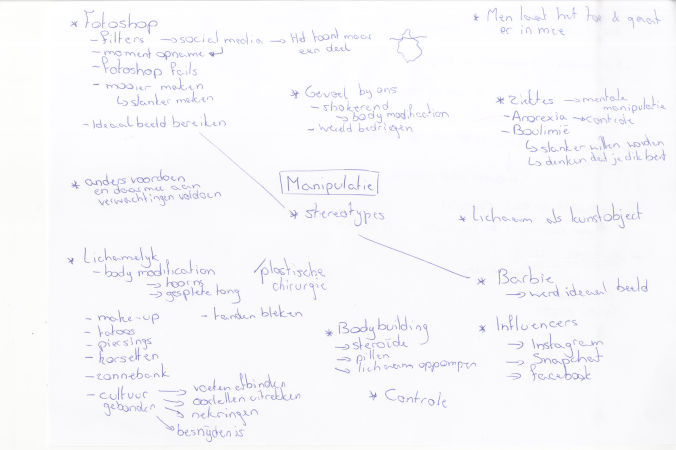 * Fotoshop
- filters → social media → Het toont maar een deel
- moment opname
- Fotoshop fails
- mooier maken
↳ slanker maken
- Ideaal beeld bereiken
* Men laat het toe & gaat
er in mee
* Gevoel bij ons
- shokerend
→ body modification
- wereld bedriegen
* Ziektes → mentale manipulatie
- Anorexia → controle
- Boulimië
↳ slanker willen worden
↳ denken dat je dik bent
* anders voordoen
en daarmee aan
verwachtingen voldoen
Manipulatie
* stereotypes
* Lichaam als kunstobject
* Lichamelijk
- body modification
→ hoorns
→ gesplete tong
plastische
chirurgie
- make-up
- tanden bleken
- tatoos
- piersings
- korsetten
- zonnebank
- cultuur
gebonden
→ voeten afbinden
→ oorlellen uitrekken
→ nekringen
besnijdenis
* Barbie
→ werd ideaal beeld
* Bodybuilding
→ steroïde
→ pillen
→ lichaam oppompen
* Influencers
→ Instagram
→ Snapchat
→ Facebook
* Controle